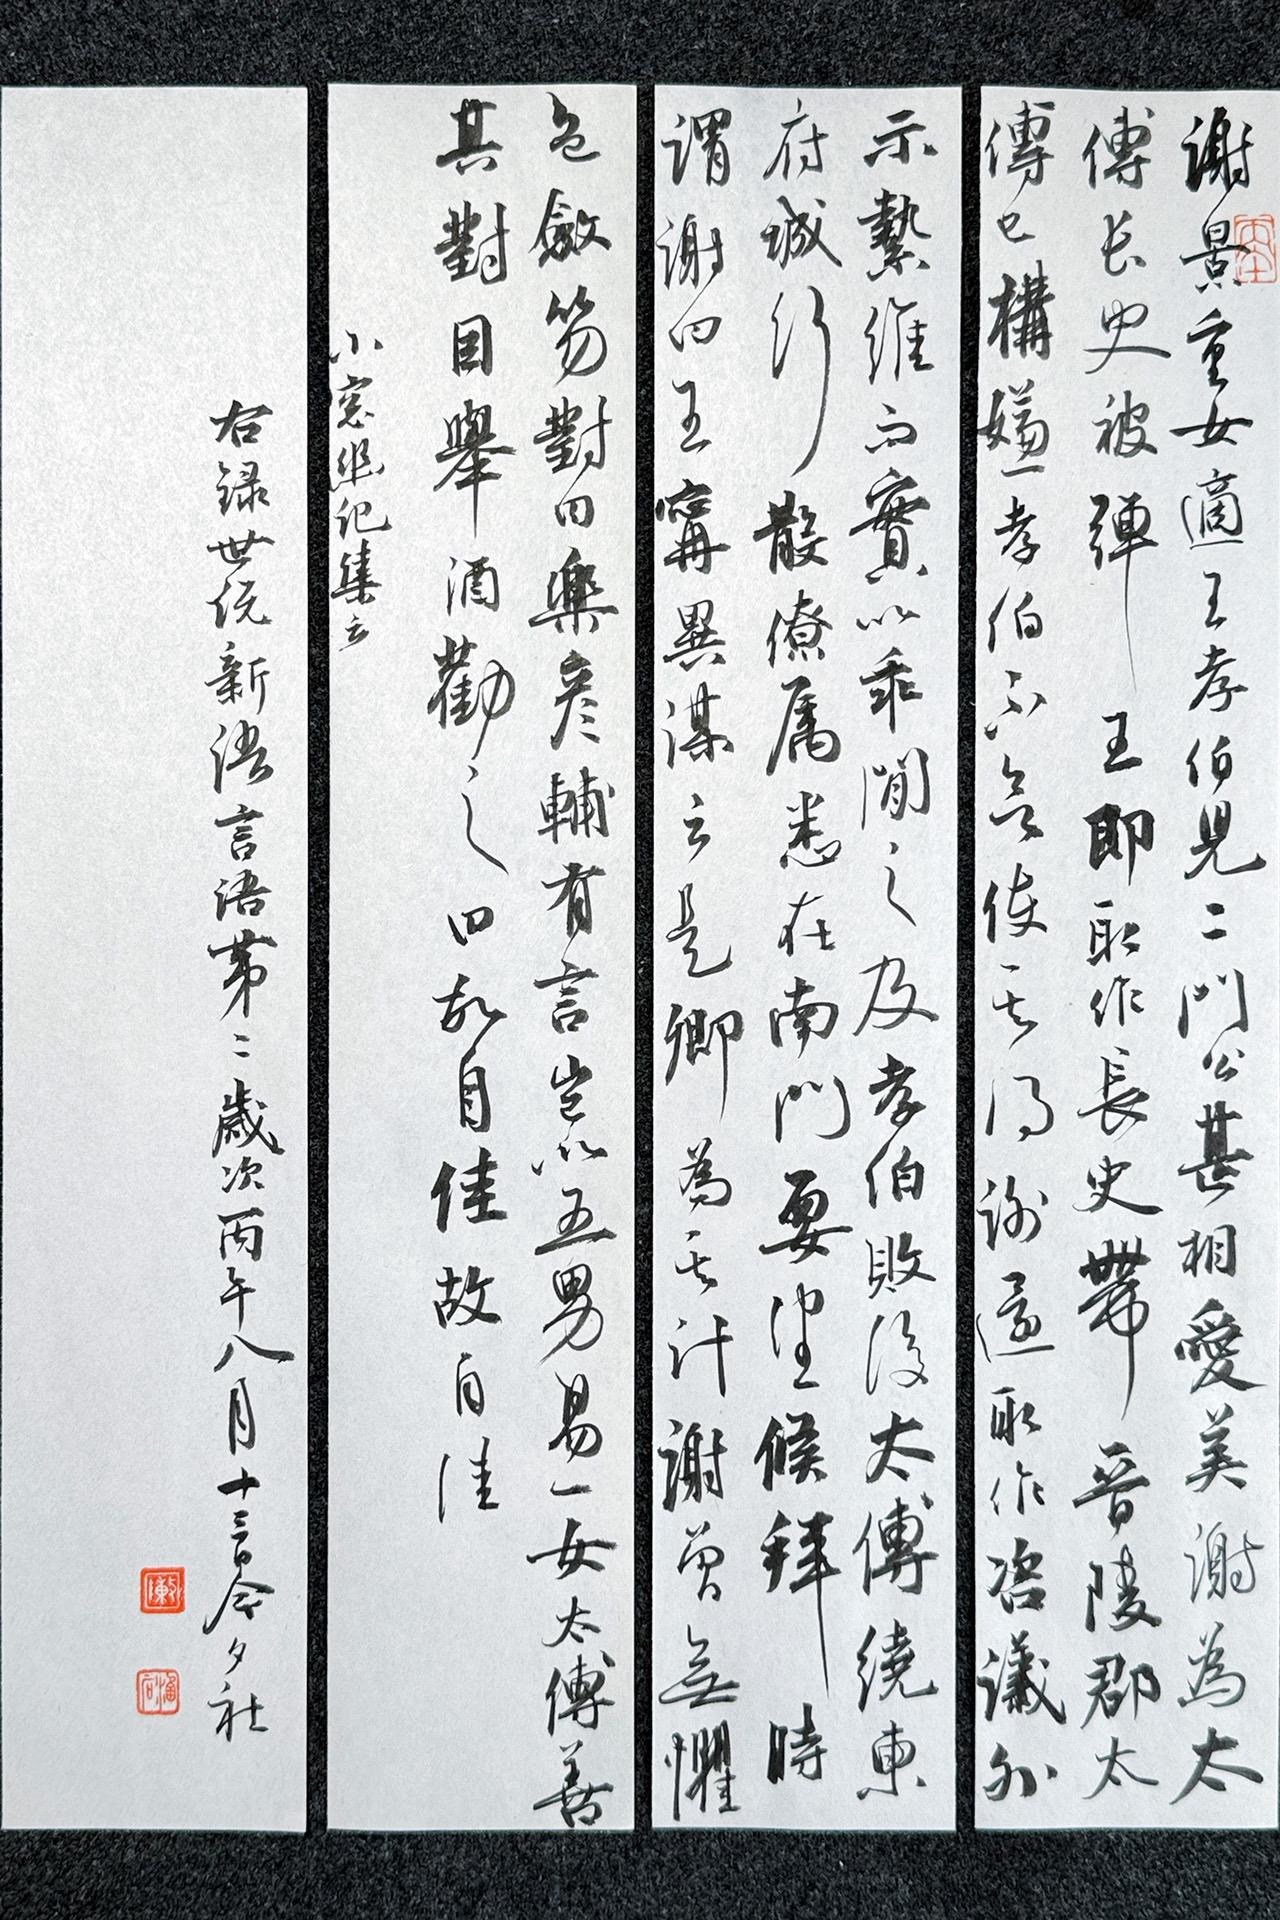 謝景重女適王孝伯兒二門公甚相愛美謝為太
傅長史被彈王即取作長史帶晉陵郡太
傅已構嫌孝伯不欲使其得謝還取作咨議外
示縶維而實以乖閒之及孝伯敗後太傅繞東
府城行散僚属悉在南門要望候拜時
謂謝曰王甯異謀云是卿為其計謝曾無懼
色斂笏對曰樂彦輔有言豈以五男易一女太傅善
其對因舉酒勸之曰故自佳故自佳
小窓幽记集云
右録世说新语言語第二歲次丙午八月十三日